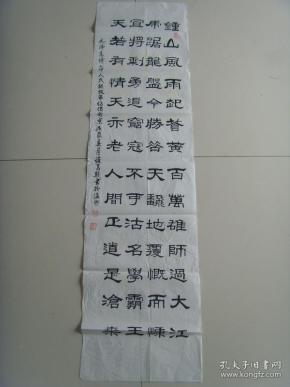 鍾山風雨起蒼黃百萬雄師過大江
虎踞龍盤今勝昔天翻地覆慨而慷
宜將剩勇追窮寇不可沽名學霸王
天若有情天亦老人間正道是滄桑
人民解放軍佔領南京
孔夫子旧书网